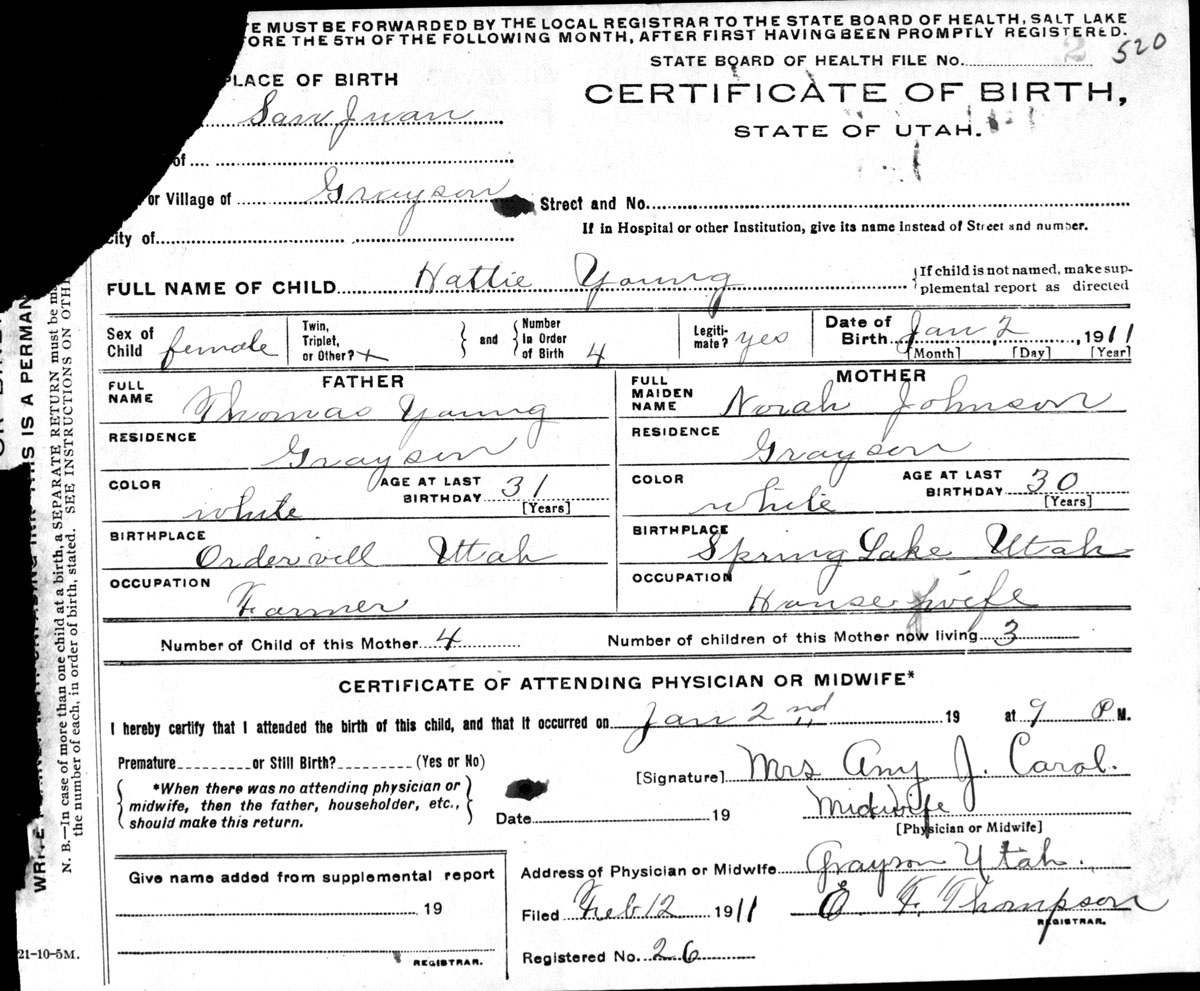 E MUST BE FORWARDED BY THE LOCAL REGISTRAR TO THE STATE BOARD OF HEALTH, SALT LAKE
FORE THE 5TH OF THE FOLLOWING MONTH, AFTER FIRST HAVING BEEN PROMPTLY REGISTERED.
STATE BOARD OF HEALTH FILE NO. 2 520
PLACE OF BIRTH
CERTIFICATE OF BIRTH,
San Juan
STATE OF UTAH.
of
or Village of Grayson Street and No.
City of If in Hospital or other Institution, give its name instead of Street and number.
FULL NAME OF CHILD Hattie Young {If child is not named, make sup-
plemental report as directed
Sex of Child female Twin, Triplet, or Other? x } and { Number In Order of Birth 4 Legiti- mate? yes Date of Birth Jan 2, 1911
[Month] [Day] [Year]
FATHER MOTHER
FULL NAME Thomas Young FULL MAIDEN NAME Norah Johnson
RESIDENCE Grayson RESIDENCE Grayson
COLOR white AGE AT LAST BIRTHDAY 31 [Years] COLOR white AGE AT LAST BIRTHDAY 30 [Years]
BIRTHPLACE Ordervill Utah BIRTHPLACE Spring Lake Utah
OCCUPATION Farmer OCCUPATION House wife
Number of Child of this Mother 4 Number of children of this Mother now living 3
CERTIFICATE OF ATTENDING PHYSICIAN OR MIDWIFE*
I hereby certify that I attended the birth of this child, and that it occurred on Jan 2nd 19 at 9 P M.
Premature or Still Birth? (Yes or No)
[Signature] Mrs Amy J. Carol.
{*When there was no attending physician or
midwife, then the father, householder, etc.,
should make this return.}
Date 19 Midwife
[Physician or Midwife]
Give name added from supplemental report
19
REGISTRAR.
Address of Physician or Midwife Grayson Utah.
Filed Feb 12 1911 E F. Thompson
REGISTRAR.
Registered No. 26
21-10-5M.
THIS IS A PERMAN
N. B.—In case of more than one child at a birth, a SEPARATE RETURN must be ma
the number of each, in order of birth, stated. SEE INSTRUCTIONS ON OTH